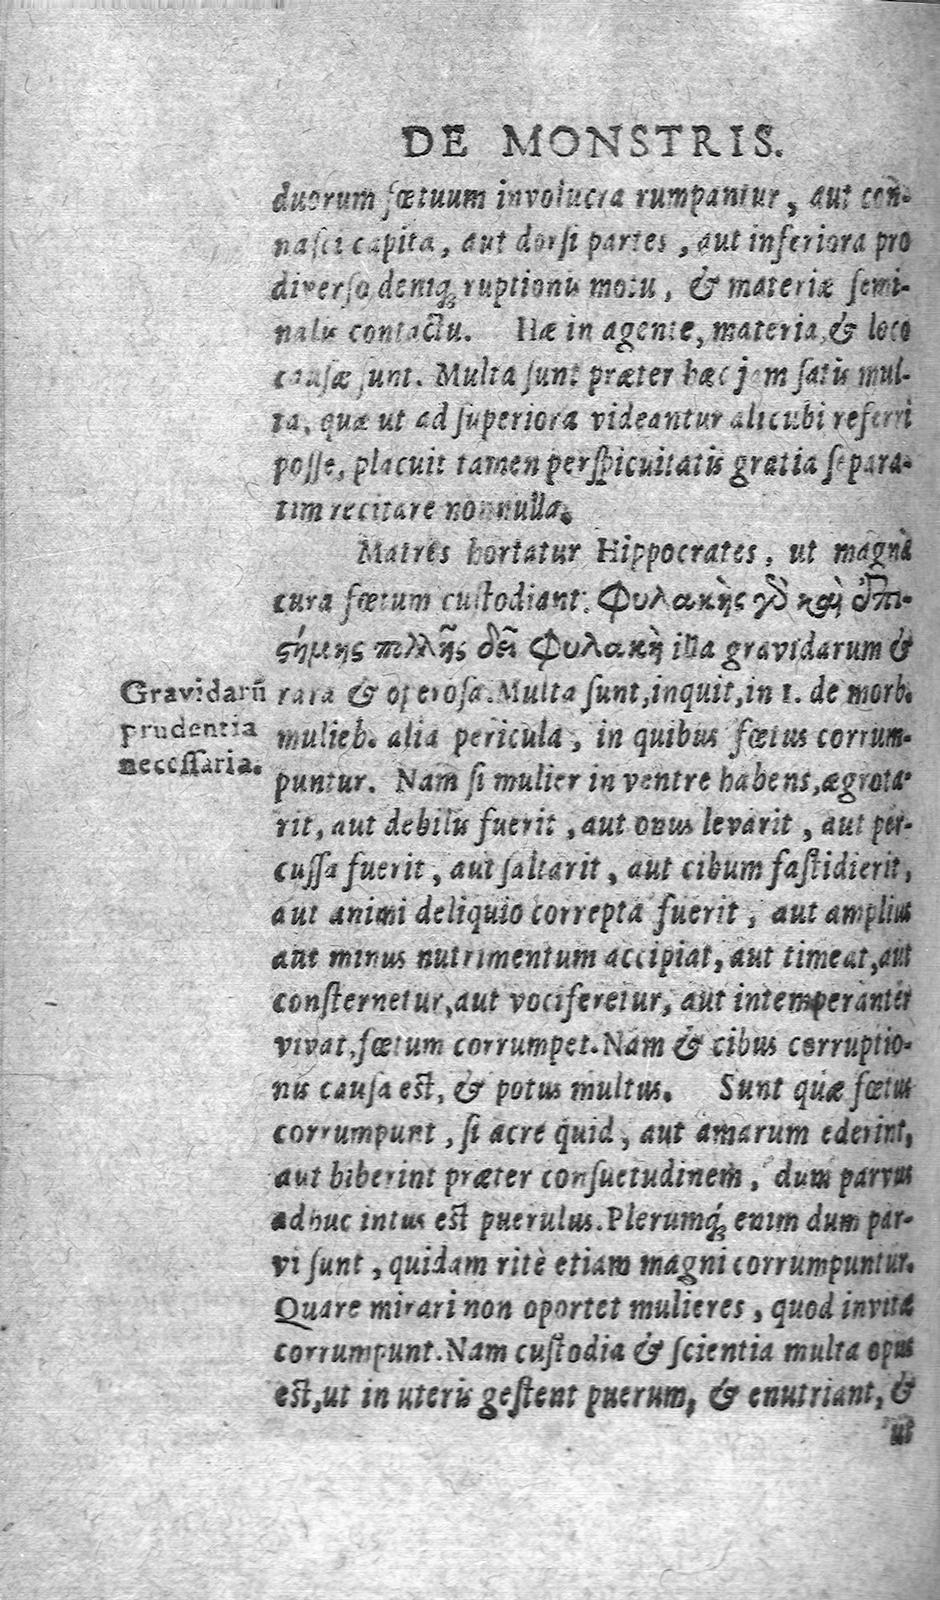 DE MONSTRIS.
duorum fœtuum involucra rumpantur, aut con-
nasci capita, aut dorsi partes, aut inferiora pro
diverso deniq; ruptionis motu, & materiæ semi-
nalis contactu. Hæ in agente, materia, & loco
causæ sunt. Multa sunt præter hæc jam satis mul-
ta, quæ ut ad superiora videantur alicubi referri
posse, placuit tamen perspicuitatis gratia separa-
tim recitare nonnulla.
Matres hortatur Hippocrates, ut magnà
cura fœtum custodiant: Φυλακῆς γδ καὶ ὀπι-
ςήμης πολλῆς δεῖ Φυλακὴ illa gravidarum &
rara & operosa. Multa sunt, inquit, in 1. de morb.
mulieb. alia pericula, in quibus fœtus corrum-
puntur. Nam si mulier in ventre habens, ægrota-
rit, aut debilis fuerit, aut onus levarit, aut per-
cussa fuerit, aut saltarit, aut cibum fastidierit,
aut animi deliquio correpta fuerit, aut amplius
aut minus nutrimentum accipiat, aut timeat, aut
consternetur, aut vociferetur, aut intemperanter
vivat, fœtum corrumpet. Nam & cibus corruptio-
nis causa est, & potus multus. Sunt quæ fœtus
corrumpunt, si acre quid, aut amarum ederint,
aut biberint præter consuetudinem, dum parvus
adhuc intus est puerulus. Plerumq; enim dum par-
vi sunt, quidam ritè etiam magni corrumpuntur.
Quare mirari non oportet mulieres, quod invitæ
corrumpunt. Nam custodia & scientia multa opus
est, ut in uteris gestent puerum, & enutriant, &
ut
Gravidarū
prudentia
necessaria.